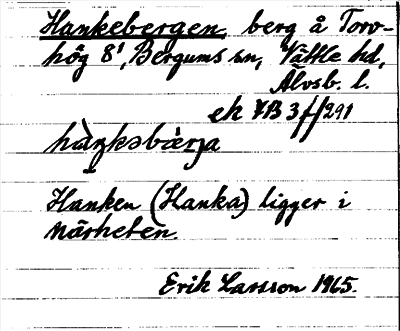 Hankebergen, berg å Torv-
hög 8¹, Bergums sn, Vättle hd,
Älvsb. l.
ek XB3ff/291
hàŋkəbær̀ja
Hanken (Hanka) ligger i
närheten.
Erik Larsson 1965.